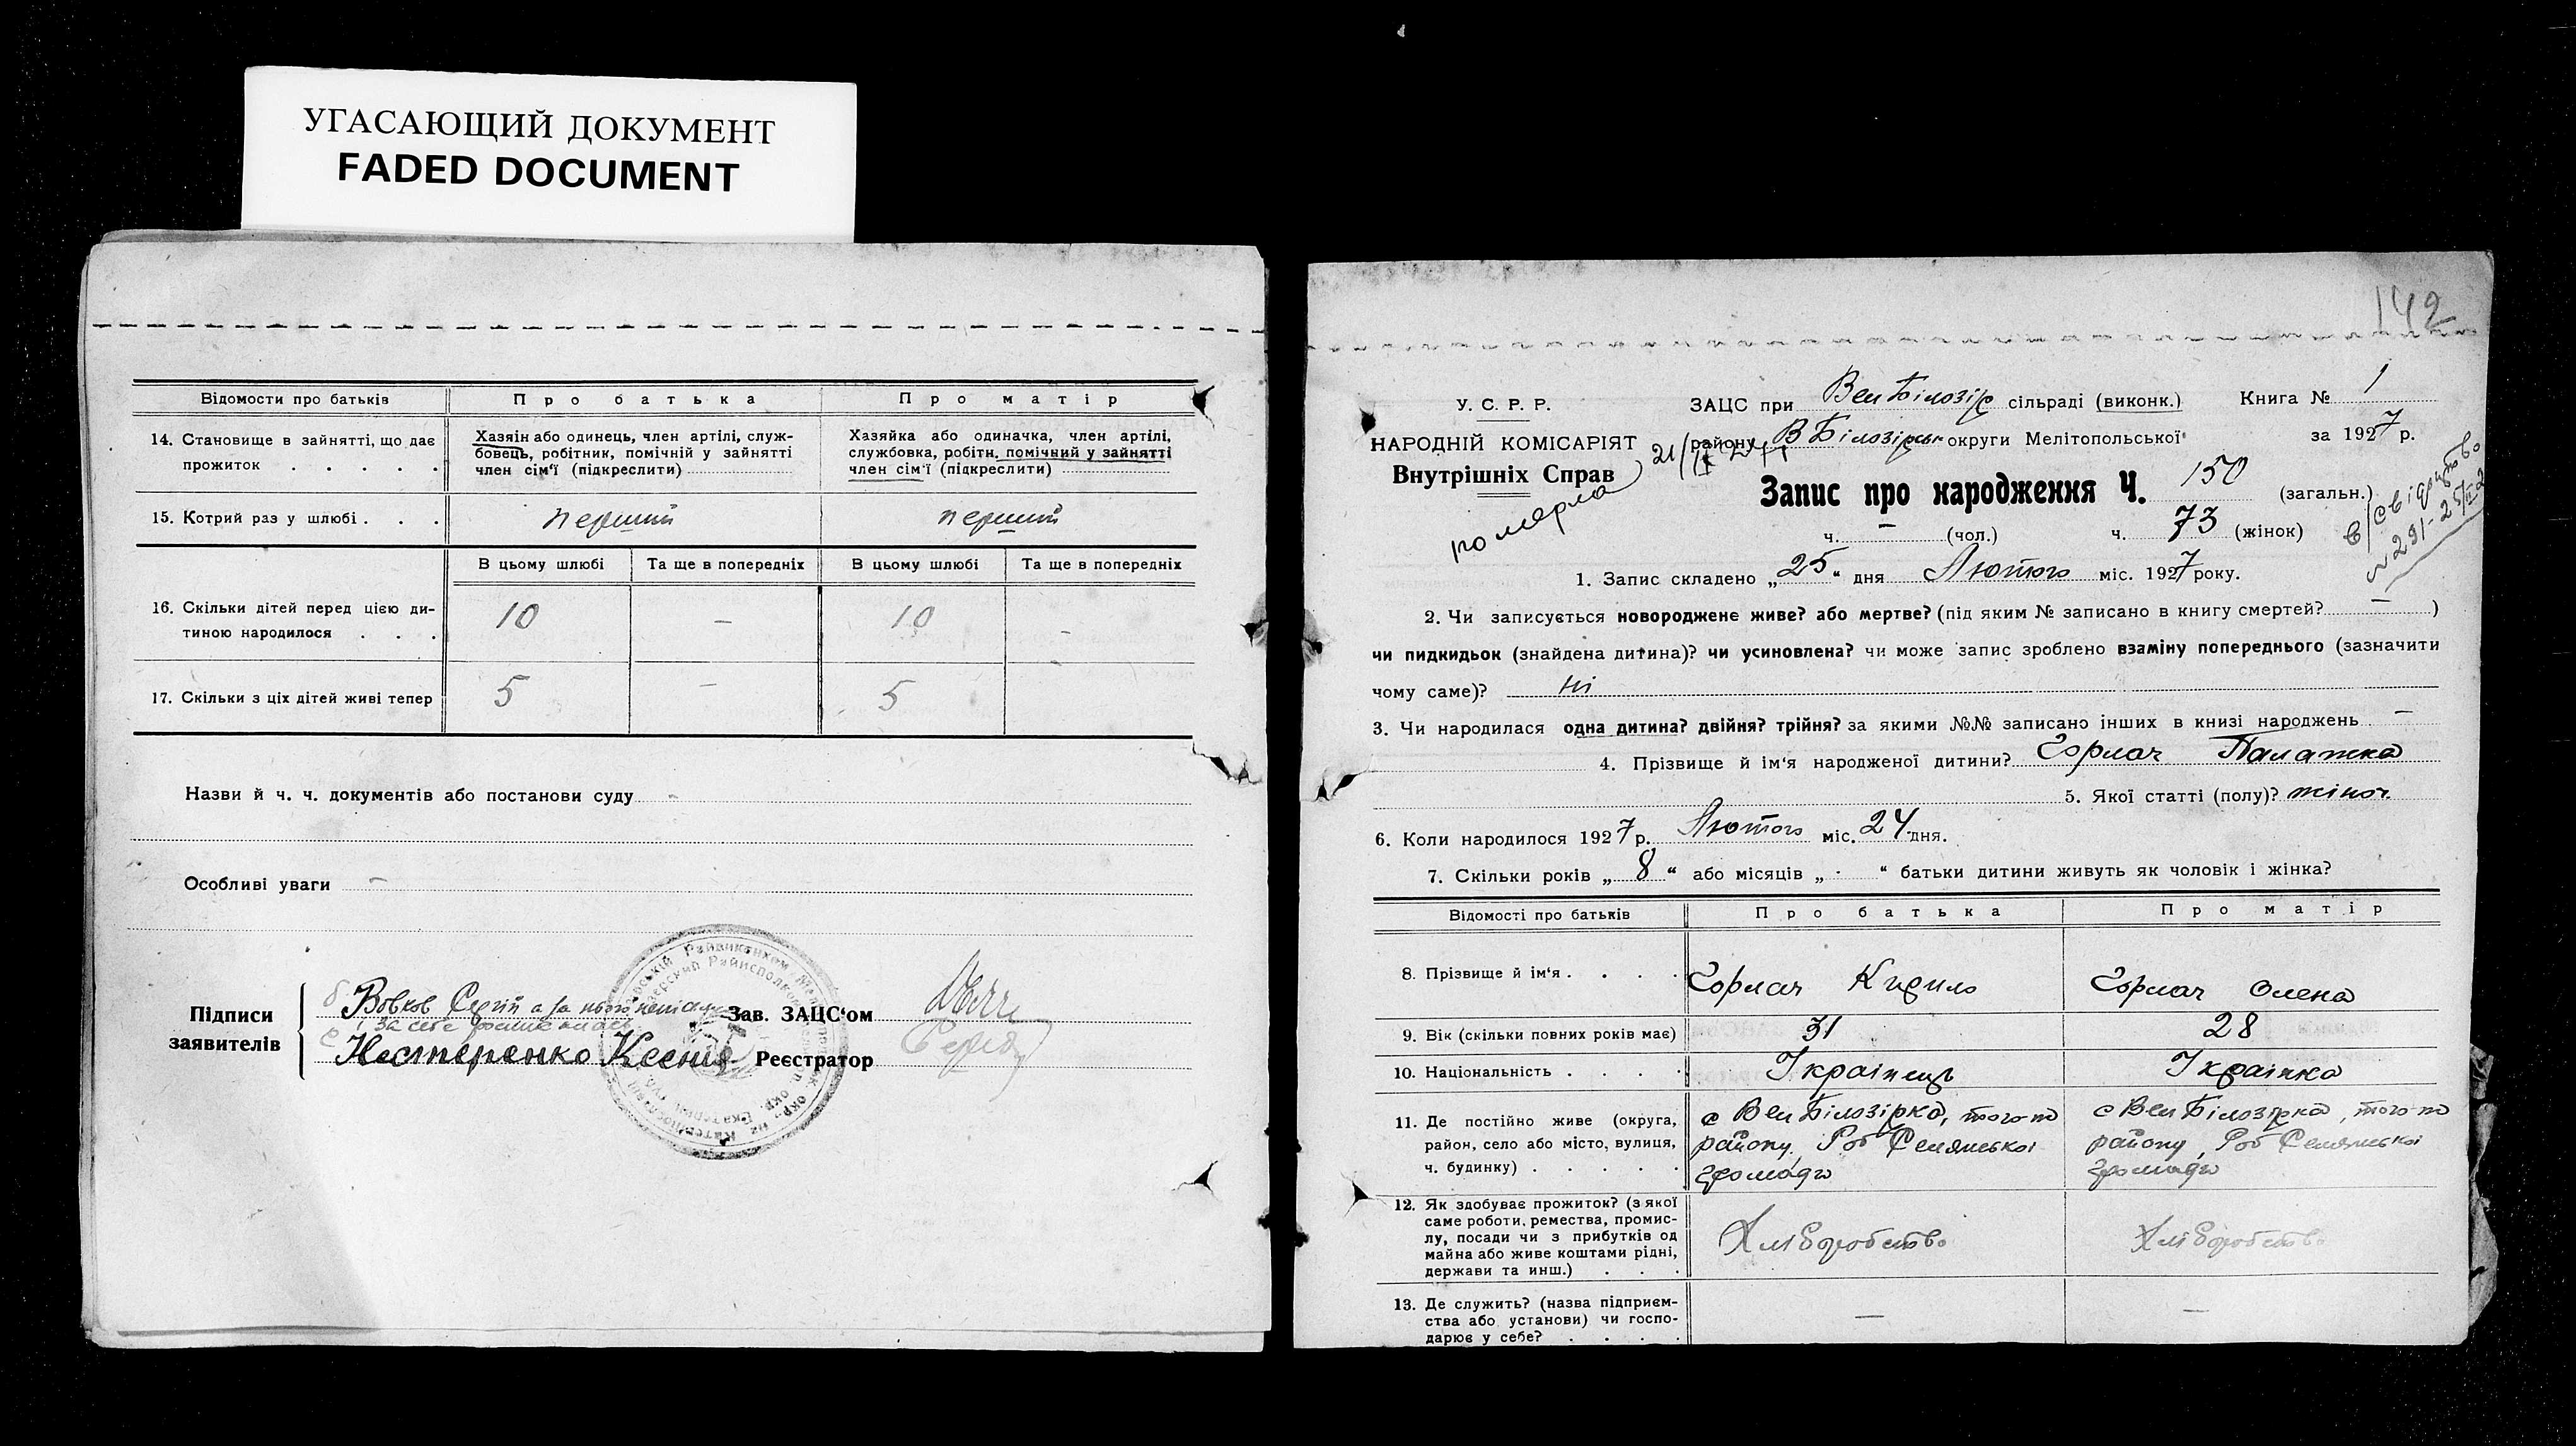 УГАСАЮЩИЙ ДОКУМЕНТ
FADED DOCUMENT
Відомости про батьків
Про батька
Про матір
14. Становище в зайнятті, що дає прожиток . . . . .
Хазяін або одинець, член артілі, служ-
бовець, робітник, помічній у зайнятті
член сім'ї (підкреслити)
Хазяйка або одиначка, член артілі,
службовка, робітн. помічний у зайнятті
член сім'ї (підкреслити)
15. Котрий раз у шлюбі . . .
перший
перший
В цьому шлюбі
Та ще в попередніх
В цьому шлюбі
Та ще в попередніх
16. Скільки дітей перед цією ди-
тиною народилося . . .
10
–
10
–
17. Скільки з ціх дітей живі тепер
5
–
5
Назви й ч. ч. документів або постанови суду –
Особливі уваги –
Підписи
заявителів
Вовков Сергій а за нього
Нестеренко Ксения
Зав. ЗАЦС'ом
Реєстратор
142
У. С. Р. Р.
НАРОДНІЙ КОМІСАРІЯТ
Внутрішніх Справ
померла
ЗАЦС при Вел Білозір сільраді (виконк.)
Книга № 1
району В Білозірськ округи Мелітопольської
за 1927 р.
Запис про народження Ч. 150 (загальн.)
ч. – (чол.) ч. 73 (жінок)
1. Запис складено „25“ дня Лютого міс. 1927 року.
2. Чи записується новороджене живе? або мертве? (під яким № записано в книгу смертей? – )
чи пидкидьок (знайдена дитина)? чи усиновлена? чи може запис зроблено взаміну попереднього (зазначити
чому саме)? ні
3. Чи народилася одна дитина? двійня? трійня? за якими №№ записано інших в книзі народжень –
4. Прізвище й ім'я народженої дитини? Горлач Палажка
5. Якої статті (полу)? жіноч.
6. Коли народилося 1927 р. Лютого міс. 24 дня.
7. Скільки років „ 8 “ або місяців „ - “ батьки дитини живуть як чоловік і жінка?
Відомості про батьків
Про батька
Про матір
8. Прізвище й ім'я . . . .
Горлач Кирило
Горлач Олена
9. Вік (скільки повних років має)
31
28
10. Національність . . . .
Українець
Українка
11. Де постійно живе (округа,
район, село або місто, вулиця,
ч. будинку) . . . . .
с Вел Білозірка, того-ж
району, Роб Селянської
громади
с Вел Білозірка, того-ж
району, Роб Селянської
громади
12. Як здобуває прожиток? (з якої
саме роботи, ремества, промис-
лу, посади чи з прибутків од
майна або живе коштами рідні,
держави та инш.) . . .
Хліборобство
Хліборобство
13. Де служить? (назва підприєм-
ства або установи) чи госпо-
дарює у себе? . . . .
–
–